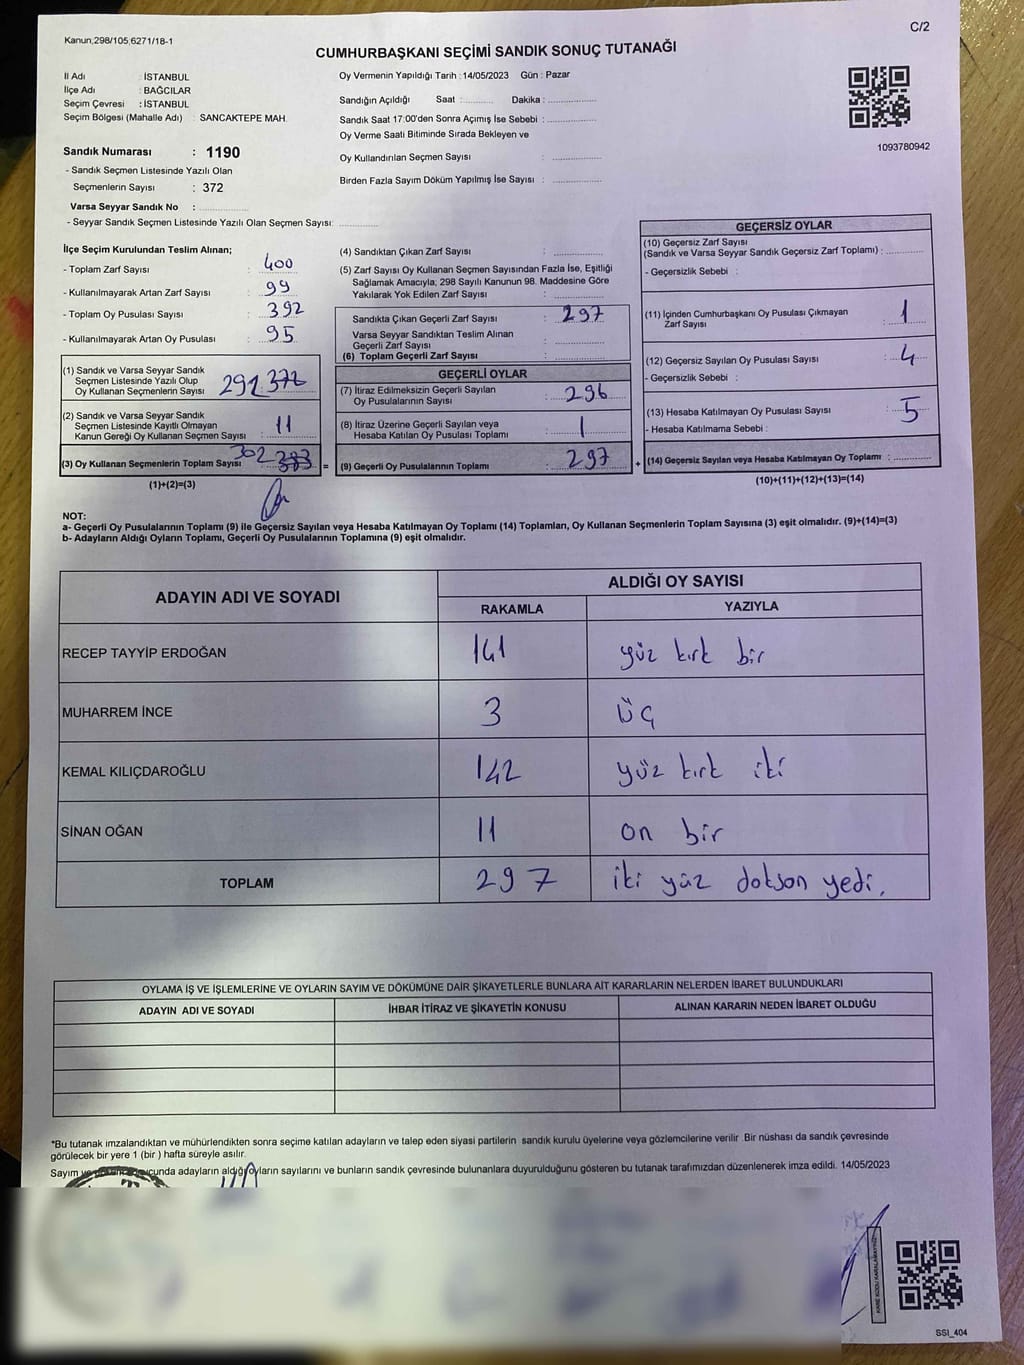 Kanun,298/105,6271/18-1
C/2
CUMHURBAŞKANI SEÇİMİ SANDIK SONUÇ TUTANAĞI
İl Adı : İSTANBUL
İlçe Adı : BAĞCILAR
Seçim Çevresi : İSTANBUL
Seçim Bölgesi (Mahalle Adı) : SANCAKTEPE MAH.
Sandık Numarası : 1190
- Sandık Seçmen Listesinde Yazılı Olan
Seçmenlerin Sayısı : 372
Varsa Seyyar Sandık No :
- Seyyar Sandık Seçmen Listesinde Yazılı Olan Seçmen Sayısı:
Oy Vermenin Yapıldığı Tarih : 14/05/2023 Gün : Pazar
Sandığın Açıldığı Saat : Dakika :
Sandık Saat 17:00'den Sonra Açımış İse Sebebi :
Oy Verme Saati Bitiminde Sırada Bekleyen ve
Oy Kullandırılan Seçmen Sayısı :
Birden Fazla Sayım Döküm Yapılmış İse Sayısı :
1093780942
İlçe Seçim Kurulundan Teslim Alınan;
- Toplam Zarf Sayısı : 400
- Kullanılmayarak Artan Zarf Sayısı : 99
- Toplam Oy Pusulası Sayısı : 392
- Kullanılmayarak Artan Oy Pusulası : 95
(1) Sandık ve Varsa Seyyar Sandık
Seçmen Listesinde Yazılı Olup
Oy Kullanan Seçmenlerin Sayısı 291 372
(2) Sandık ve Varsa Seyyar Sandık
Seçmen Listesinde Kayıtlı Olmayan
Kanun Gereği Oy Kullanan Seçmen Sayısı : 11
(3) Oy Kullanan Seçmenlerin Toplam Sayısı 302 383
(1)+(2)=(3)
(4) Sandıktan Çıkan Zarf Sayısı :
(5) Zarf Sayısı Oy Kullanan Seçmen Sayısından Fazla İse, Eşitliği
Sağlamak Amacıyla; 298 Sayılı Kanunun 98. Maddesine Göre
Yakılarak Yok Edilen Zarf Sayısı :
Sandıkta Çıkan Geçerli Zarf Sayısı : 297
Varsa Seyyar Sandıktan Teslim Alınan
Geçerli Zarf Sayısı :
(6) Toplam Geçerli Zarf Sayısı :
GEÇERLİ OYLAR
(7) İtiraz Edilmeksizin Geçerli Sayılan
Oy Pusulalarının Sayısı : 296
(8) İtiraz Üzerine Geçerli Sayılan veya
Hesaba Katılan Oy Pusulası Toplamı : 1
= (9) Geçerli Oy Pusulalarının Toplamı : 297 +
GEÇERSİZ OYLAR
(10) Geçersiz Zarf Sayısı
(Sandık ve Varsa Seyyar Sandık Geçersiz Zarf Toplamı) :
- Geçersizlik Sebebi :
(11) İçinden Cumhurbaşkanı Oy Pusulası Çıkmayan
Zarf Sayısı : 1
(12) Geçersiz Sayılan Oy Pusulası Sayısı : 4
- Geçersizlik Sebebi :
(13) Hesaba Katılmayan Oy Pusulası Sayısı : 5
- Hesaba Katılmama Sebebi :
(14) Geçersiz Sayılan veya Hesaba Katılmayan Oy Toplamı :
(10)+(11)+(12)+(13)=(14)
NOT:
a- Geçerli Oy Pusulalarının Toplamı (9) ile Geçersiz Sayılan veya Hesaba Katılmayan Oy Toplamı (14) Toplamları, Oy Kullanan Seçmenlerin Toplam Sayısına (3) eşit olmalıdır. (9)+(14)=(3)
b- Adayların Aldığı Oyların Toplamı, Geçerli Oy Pusulalarının Toplamına (9) eşit olmalıdır.
ADAYIN ADI VE SOYADI
ALDIĞI OY SAYISI
RAKAMLA YAZIYLA
RECEP TAYYİP ERDOĞAN 141 yüz kırk bir
MUHARREM İNCE 3 üç
KEMAL KILIÇDAROĞLU 142 yüz kırk iki
SİNAN OĞAN 11 on bir
TOPLAM 297 iki yüz doksan yedi.
OYLAMA İŞ VE İŞLEMLERİNE VE OYLARIN SAYIM VE DÖKÜMÜNE DAİR ŞİKAYETLERLE BUNLARA AİT KARARLARIN NELERDEN İBARET BULUNDUKLARI
ADAYIN ADI VE SOYADI İHBAR İTİRAZ VE ŞİKAYETİN KONUSU ALINAN KARARIN NEDEN İBARET OLDUĞU
*Bu tutanak imzalandıktan ve mühürlendikten sonra seçime katılan adayların ve talep eden siyasi partilerin sandık kurulu üyelerine veya gözlemcilerine verilir. Bir nüshası da sandık çevresinde
görülecek bir yere 1 (bir ) hafta süreyle asılır.
Sayım ve sonucunda adayların aldığı oyların sayılarını ve bunların sandık çevresinde bulunanlara duyurulduğunu gösteren bu tutanak tarafımızdan düzenlenerek imza edildi. 14/05/2023
KARE KODU KARALAMAYINIZ
SSI_404